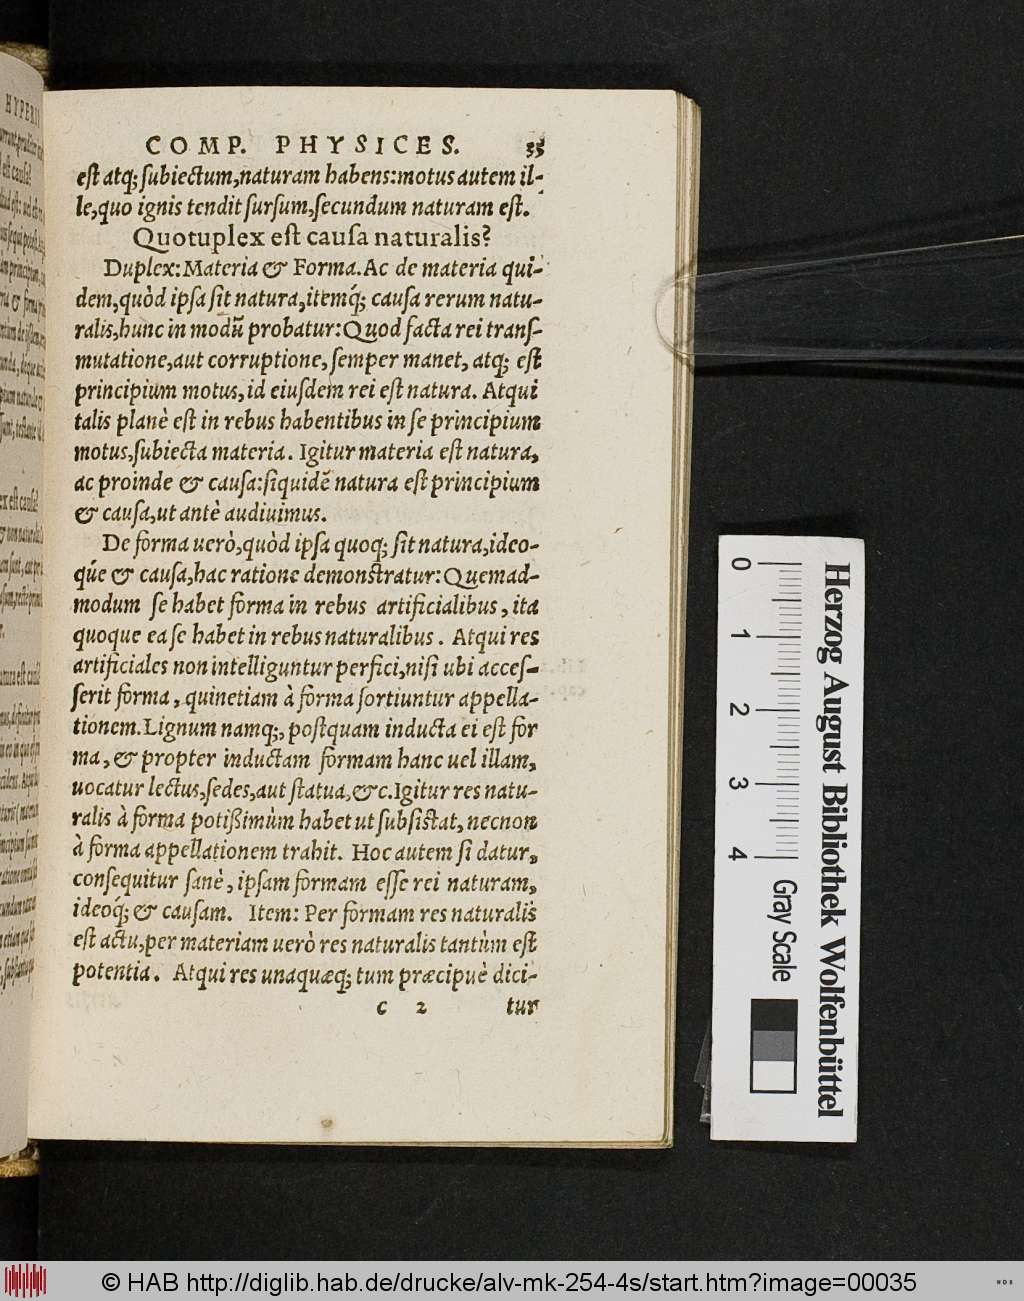 COMP. PHYSICES. 35
est atq; ſubiectum,naturam habens:motus autem il-
le,quo ignis tendit ſurſum,ſecundum naturam eſt.
Quotuplex eſt cauſa naturalis?
Duplex:Materia & Forma.Ac de materia qui-
dem,quòd ipſa ſit natura,itemq́; cauſa rerum natu-
ralis,hunc in modũ probatur:Quod facta rei tranſ-
mutatione,aut corruptione,ſemper manet, atq; eſt
principium motus,id eiuſdem rei eſt natura. Atqui
talis planè eſt in rebus habentibus in ſe principium
motus,ſubiecta materia. Igitur materia eſt natura,
ac proinde & cauſa:ſiquidē natura eſt principium
& cauſa,ut antè audiuimus.
De forma uerò,quòd ipſa quoq; ſit natura,ideo-
q́ue & cauſa,hac ratione demonſtratur:Quemad-
modum ſe habet forma in rebus artificialibus, ita
quoque ea ſe habet in rebus naturalibus. Atqui res
artificiales non intelliguntur perfici,niſi ubi acceſ-
ſerit forma, quinetiam à forma ſortiuntur appella-
tionem.Lignum namq;, poſtquam inducta ei eſt for
ma, & propter inductam formam hanc uel illam,
uocatur lectus,ſedes,aut ſtatua,&c.Igitur res natu-
ralis à forma potißimùm habet ut ſubſiſtat, necnon
à forma appellationem trahit. Hoc autem ſi datur,
conſequitur ſanè, ipſam formam eſſe rei naturam,
ideoq́; & cauſam. Item: Per formam res naturalis
eſt actu,per materiam uerò res naturalis tantùm eſt
potentia. Atqui res unaquæq; tum præcipuè dici-
c 2 tur
Herzog August Bibliothek Wolfenbüttel
0 1 2 3 4
Gray Scale
© HAB http://diglib.hab.de/drucke/alv-mk-254-4s/start.htm?image=00035